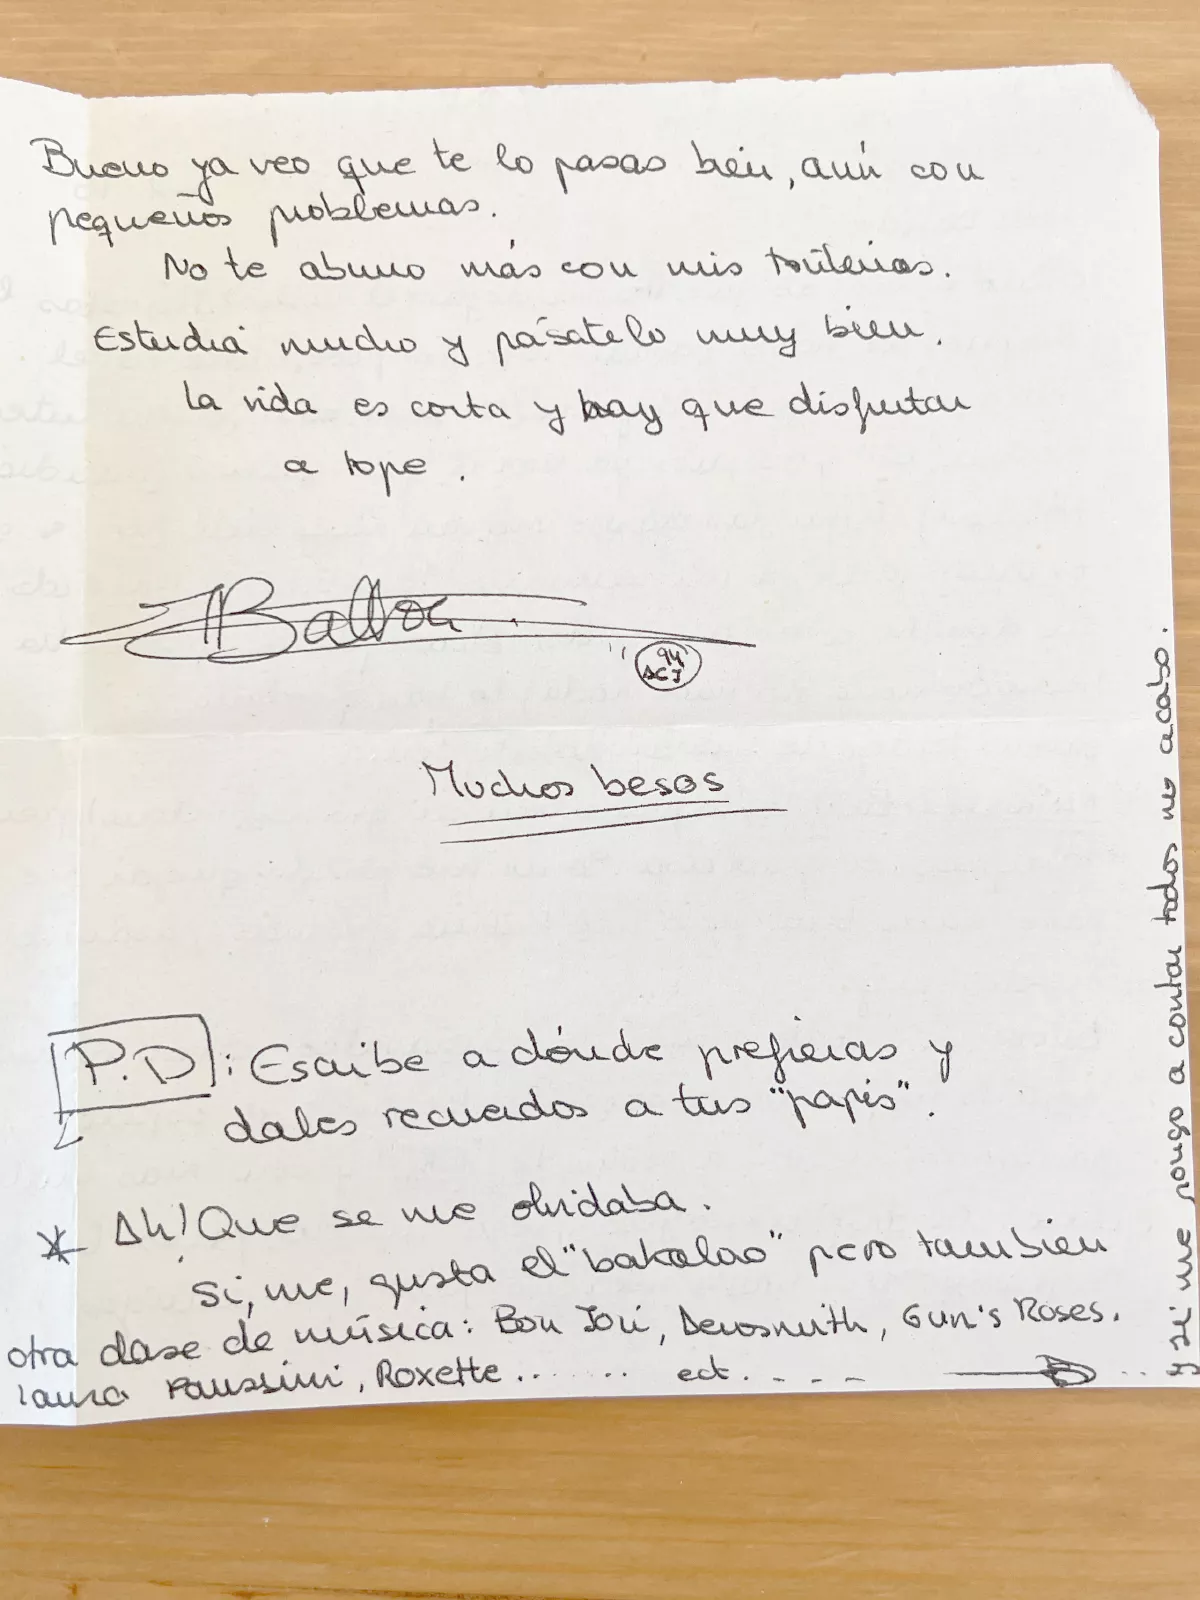 Bueno ya veo que te lo pasas bien, aún con
pequeños problemas.
No te aburro más con mis tonterías.
Estudia mucho y pásatelo muy bien.
La vida es corta y hay que disfrutar
a tope.
"94
ACJ
Muchos besos
P.D: Escribe a dónde prefieras y
dales recuerdos a tus "papis".
* Ah! Que se me olvidaba.
Si, me, gusta el "bakalao" pero también
otra clase de música: Bon Jovi, Aerosmith, Gun's Roses.
Laura Paussini, Roxette....... ect....
y si me pongo a contar todos no acabo.